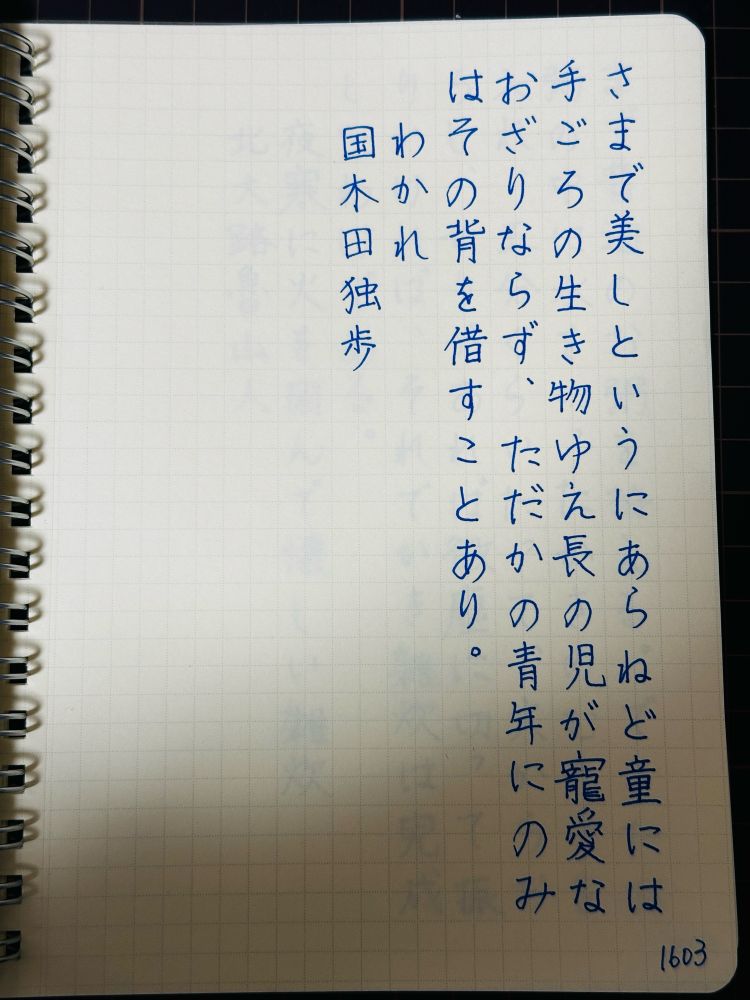 さまで美しというにあらねど童には
手ごろの生き物ゆえ長の児が寵愛な
おざりならず、ただかの青年にのみ
はその背を借すことあり。
わかれ
国木田独歩
1603